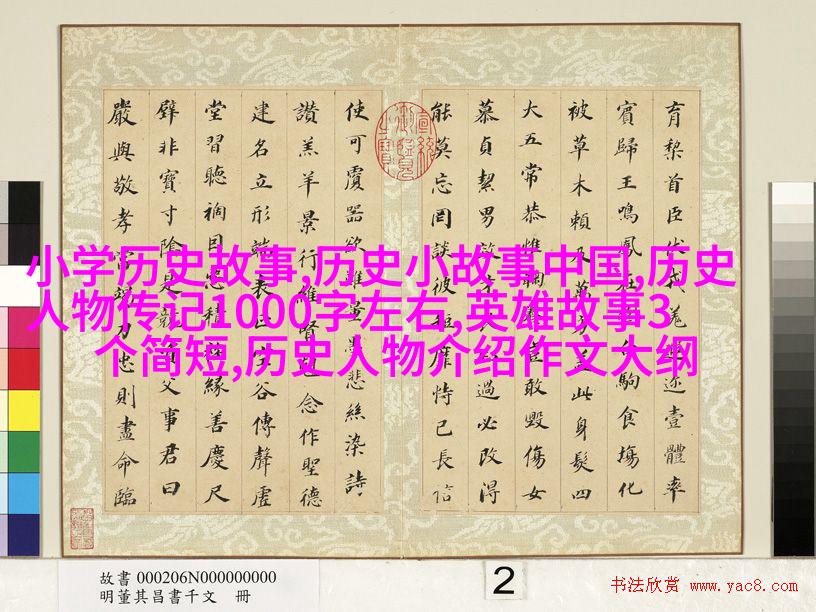 小学历史故事,历史小故事中国,历史
人物传记1000字左右,英雄故事3
个简短,历史人物介绍作文大纲
育黎首臣伏戎羌迩壹體率
賓歸王鳴鳳在白駒食場化
被草木賴及萬方蓋此身髮四
大五常恭惟鞠豈敢毀傷女
慕貞絜男效過必改得
能莫忘罔談彼短靡恃己長信
使可覆器欲難量墨悲絲染詩
讚羔羊景行維賢克念作聖德
建名立形端表正空谷傳聲虛
堂習聽禍因惡積福緣善慶尺
璧非寶寸陰是競資父事君曰
嚴與敬孝當竭力忠則盡命臨
故書 000206N000000000
明董其昌書千文 冊
2
书法欣赏 www.yac8.com